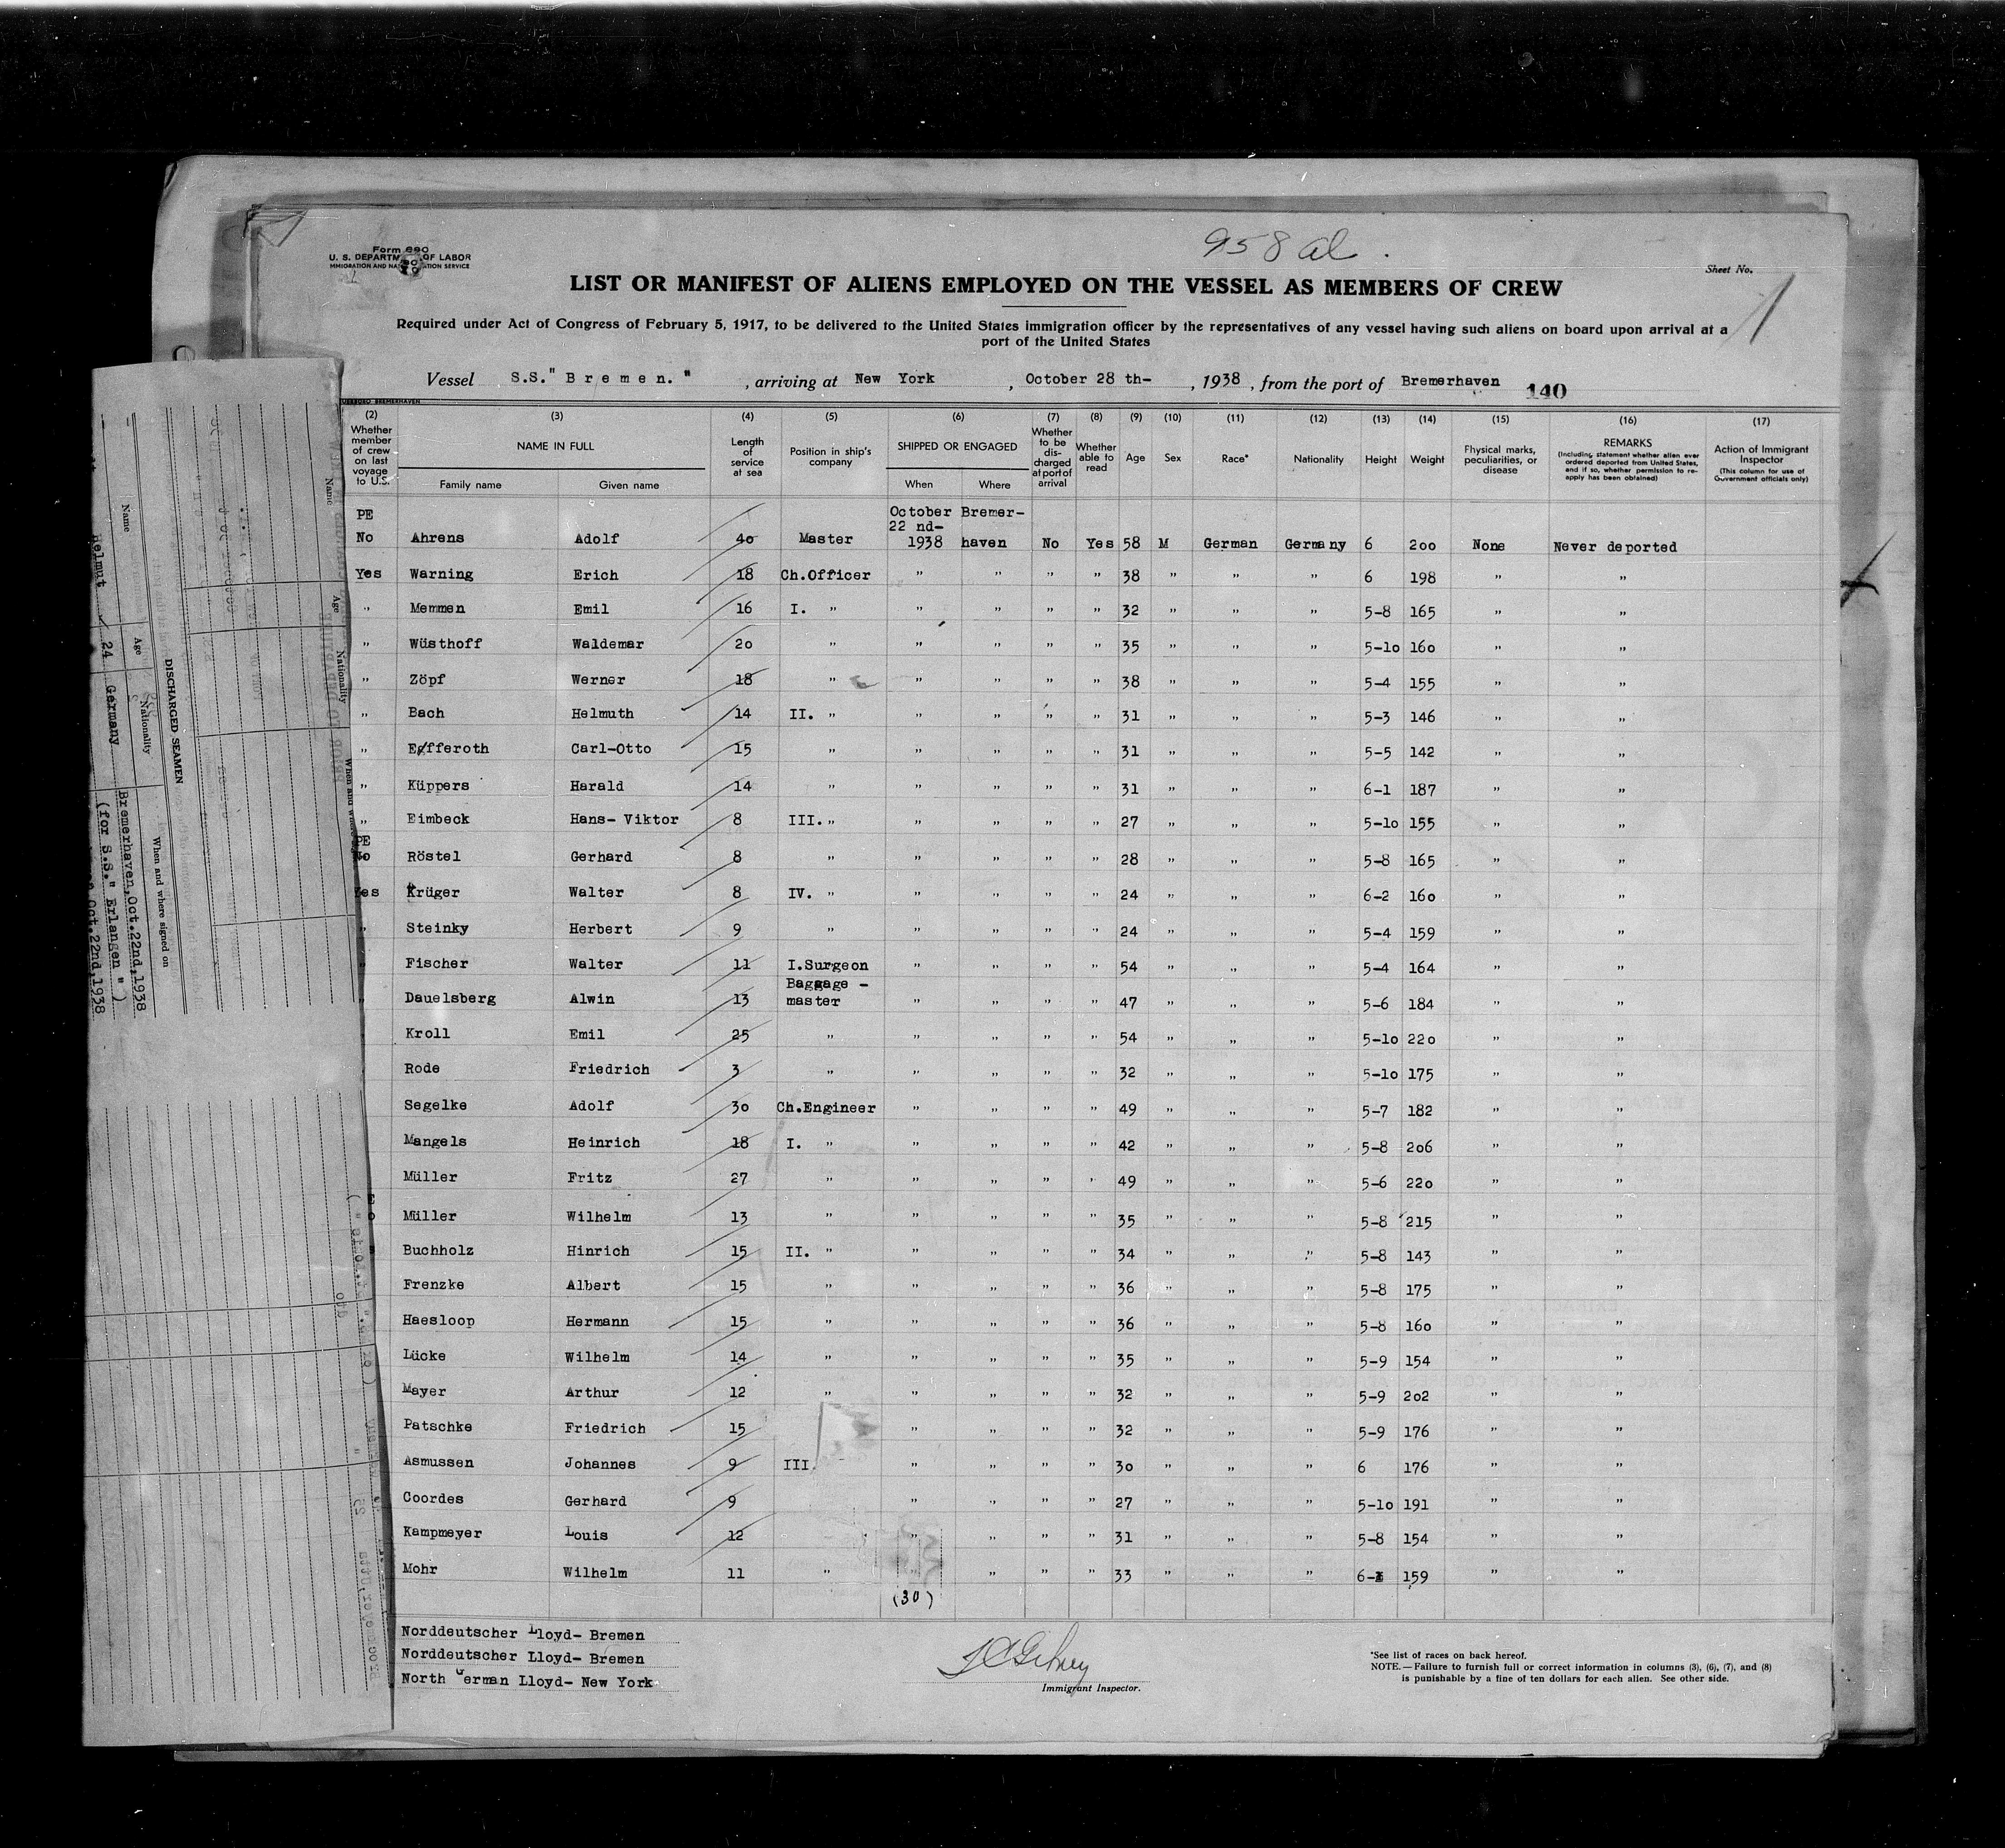 958 al.
Form 680
U. S. DEPARTM OF LABOR
IMMIGRATION AND NA ATION SERVICE
Sheet No. 1
LIST OR MANIFEST OF ALIENS EMPLOYED ON THE VESSEL AS MEMBERS OF CREW
Required under Act of Congress of February 5, 1917, to be delivered to the United States immigration officer by the representatives of any vessel having such aliens on board upon arrival at a
port of the United States
Vessel S.S." B r e m e n. " , arriving at New York , October 28 th- , 1938 , from the port of Bremerhaven 140
(2) (3) (4) (5) (6) (7) (8) (9) (10) (11) (12) (13) (14) (15) (16) (17)
Whether member of crew on last voyage to U.S. NAME IN FULL Family name Given name Length of service at sea Position in ship's company SHIPPED OR ENGAGED When Where Whether to be discharged at port of arrival Whether able to read Age Sex Race* Nationality Height Weight Physical marks, peculiarities, or disease REMARKS (Including statement whether alien ever ordered deported from United States, and if so, whether permission to re-apply has been obtained) Action of Immigrant Inspector (This column for use of Government officials only)
PE October Bremer-
22 nd-
No Ahrens Adolf 4o Master 1938 haven No Yes 58 M German Germany 6 2oo None Never deported
Yes Warning Erich 18 Ch.Officer " " " " 38 " " " 6 198 " "
" Memmen Emil 16 I. " " " " " 32 " " " 5-8 165 " "
" Wüsthoff Waldemar 2o " " " " " 35 " " " 5-1o 16o " "
" Zöpf Werner 18 " " " " " 38 " " " 5-4 155 " "
" Bach Helmuth 14 II. " " " " " 31 " " " 5-3 146 " "
" Efferoth Carl-Otto 15 " " " " " 31 " " " 5-5 142 " "
" Küppers Harald 14 " " " " " 31 " " " 6-1 187 " "
" Eimbeck Hans- Viktor 8 III. " " " " " 27 " " " 5-1o 155 " "
PE
No Röstel Gerhard 8 " " " " " 28 " " " 5-8 165 " "
Yes Krüger Walter 8 IV. " " " " " 24 " " " 6-2 16o " "
" Steinky Herbert 9 " " " " " 24 " " " 5-4 159 " "
" Fischer Walter 11 I.Surgeon " " " " 54 " " " 5-4 164 " "
Baggage -
" Dauelsberg Alwin 13 master " " " " 47 " " " 5-6 184 " "
Kroll Emil 25 " " " " " 54 " " " 5-1o 22o " "
Rode Friedrich 3 " " " " " 32 " " " 5-1o 175 " "
Segelke Adolf 3o Ch.Engineer " " " " 49 " " " 5-7 182 " "
Mangels Heinrich 18 I. " " " " " 42 " " " 5-8 2o6 " "
Müller Fritz 27 " " " " " 49 " " " 5-6 22o " "
Müller Wilhelm 13 " " " " " 35 " " " 5-8 215 " "
Buchholz Hinrich 15 II. " " " " " 34 " " " 5-8 143 " "
Frenzke Albert 15 " " " " " 36 " " " 5-8 175 " "
Haesloop Hermann 15 " " " " " 36 " " " 5-8 16o " "
Lücke Wilhelm 14 " " " " " 35 " " " 5-9 154 " "
Mayer Arthur 12 " " " " " 32 " " " 5-9 2o2 " "
Patschke Friedrich 15 " " " " 32 " " " 5-9 176 " "
Asmussen Johannes 9 III. " " " " 3o " " " 6 176 " "
Coordes Gerhard 9 " " " " 27 " " " 5-1o 191 " "
Kampmeyer Louis 12 " " " " 31 " " " 5-8 154 " "
Mohr Wilhelm 11 " " " " " 33 " " " 6- 159 " "
(30)
Norddeutscher Lloyd- Bremen
Norddeutscher Lloyd- Bremen
North German Lloyd- New York
Immigrant Inspector.
*See list of races on back hereof.
NOTE.—Failure to furnish full or correct information in columns (3), (6), (7), and (8)
is punishable by a fine of ten dollars for each alien. See other side.
DISCHARGED SEAMEN
Name Age Nationality When and where signed on
Helmut 24 Germany Bremerhaven,Oct.22nd,1938
(for S.S." Erlangen " )
Oct.22nd,1938
Name Age Nationality